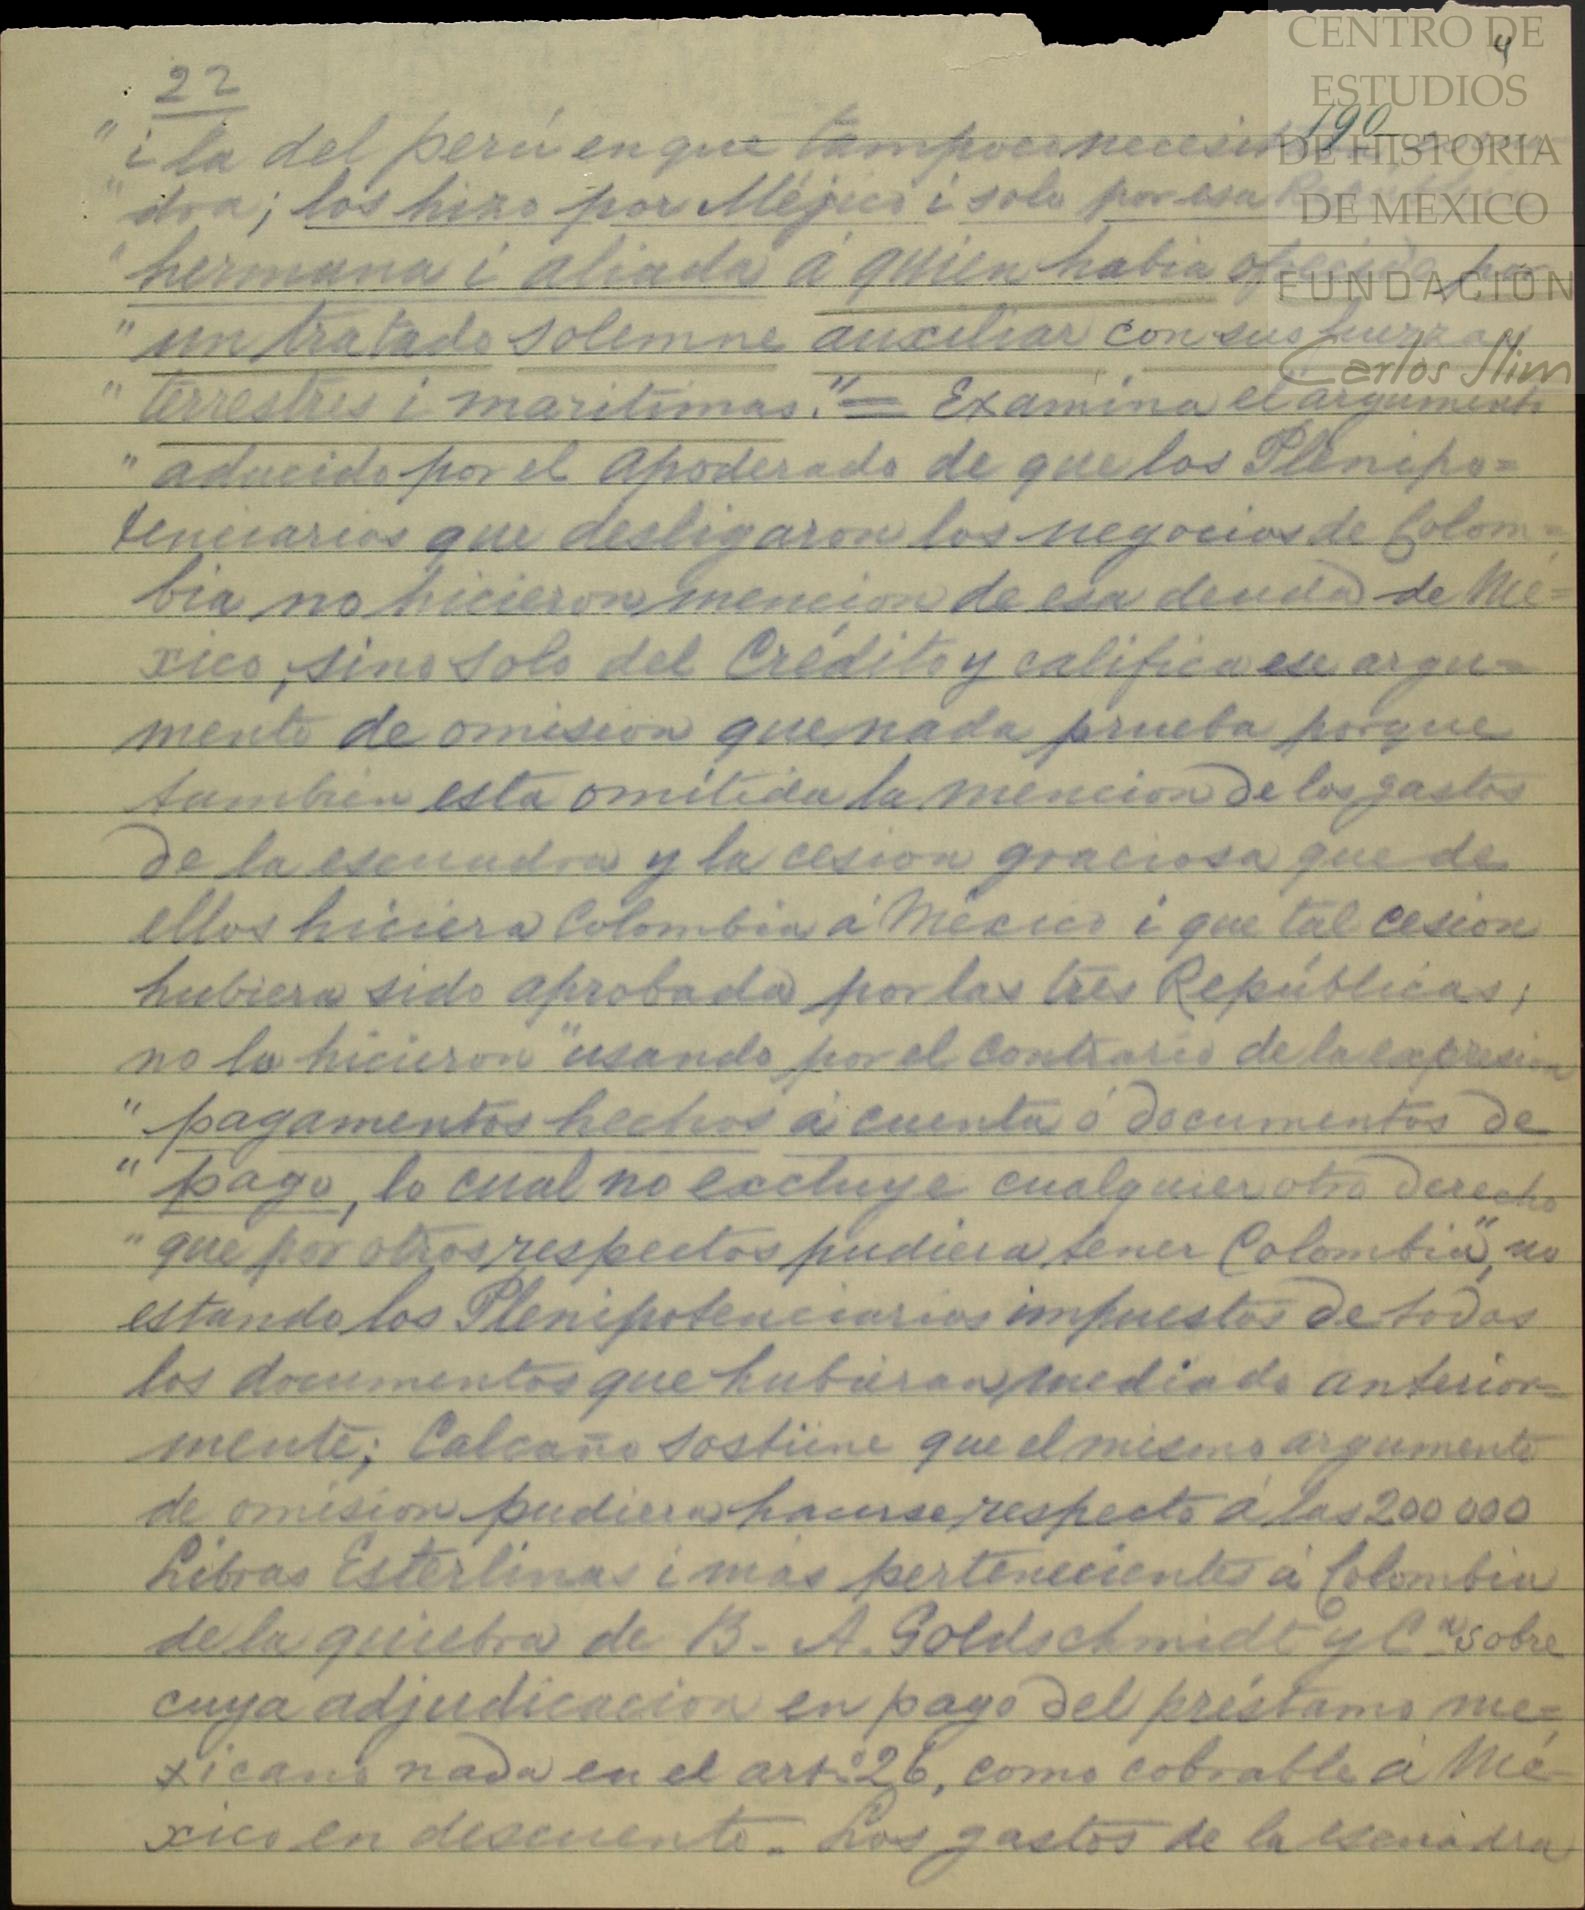 CENTRO DE
ESTUDIOS
DE HISTORIA
DE MEXICO
FUNDACIÓN
Carlos Slim
4
190
22
" i la del perú en que tampoco necesitaba escua-
" dra; los hizo por Méjico i solo por esa República
" hermana i aliada á quien habia ofrecido por
" un tratado solemne auxiliar con sus fuerzas
" terrestres i maritimas." = Examina el argumento
" aducido por el apoderado de que los Plenipo=
tenciarios que desligaron los negocios de Colom=
bia no hicieron mencion de esa deuda de Mé=
xico, sino solo del Crédito y califica ese argu=
mento de omision que nada prueba porque
tambien esta omitida la mencion de los gastos
de la escuadra y la cesion graciosa que de
ellos hiciera Colombia á México i que tal cesion
hubiera sido aprobada por las tres Repúblicas;
no lo hicieron "usando por el contrario de la expresion
" pagamentos hechos á cuenta ó documentos de
" pago, lo cual no excluye cualquier otro derecho
" que por otros respectos pudiera tener Colombia", no
estando los Plenipotenciarios impuestos de todos
los documentos que hubieran mediado anterior=
mente; Calcaño sostiene que el mismo argumento
de omision pudiera hacerse respecto á las 200 000
Libras Esterlinas i mas pertenecientes á Colombia
de la quiebra de B. A. Goldschmidt y Cª sobre
cuya adjudicacion en pago del préstamo me=
xicano nada en el arto. 26, como cobrable á Mé-
xico en descuento. Los gastos de la escuadra